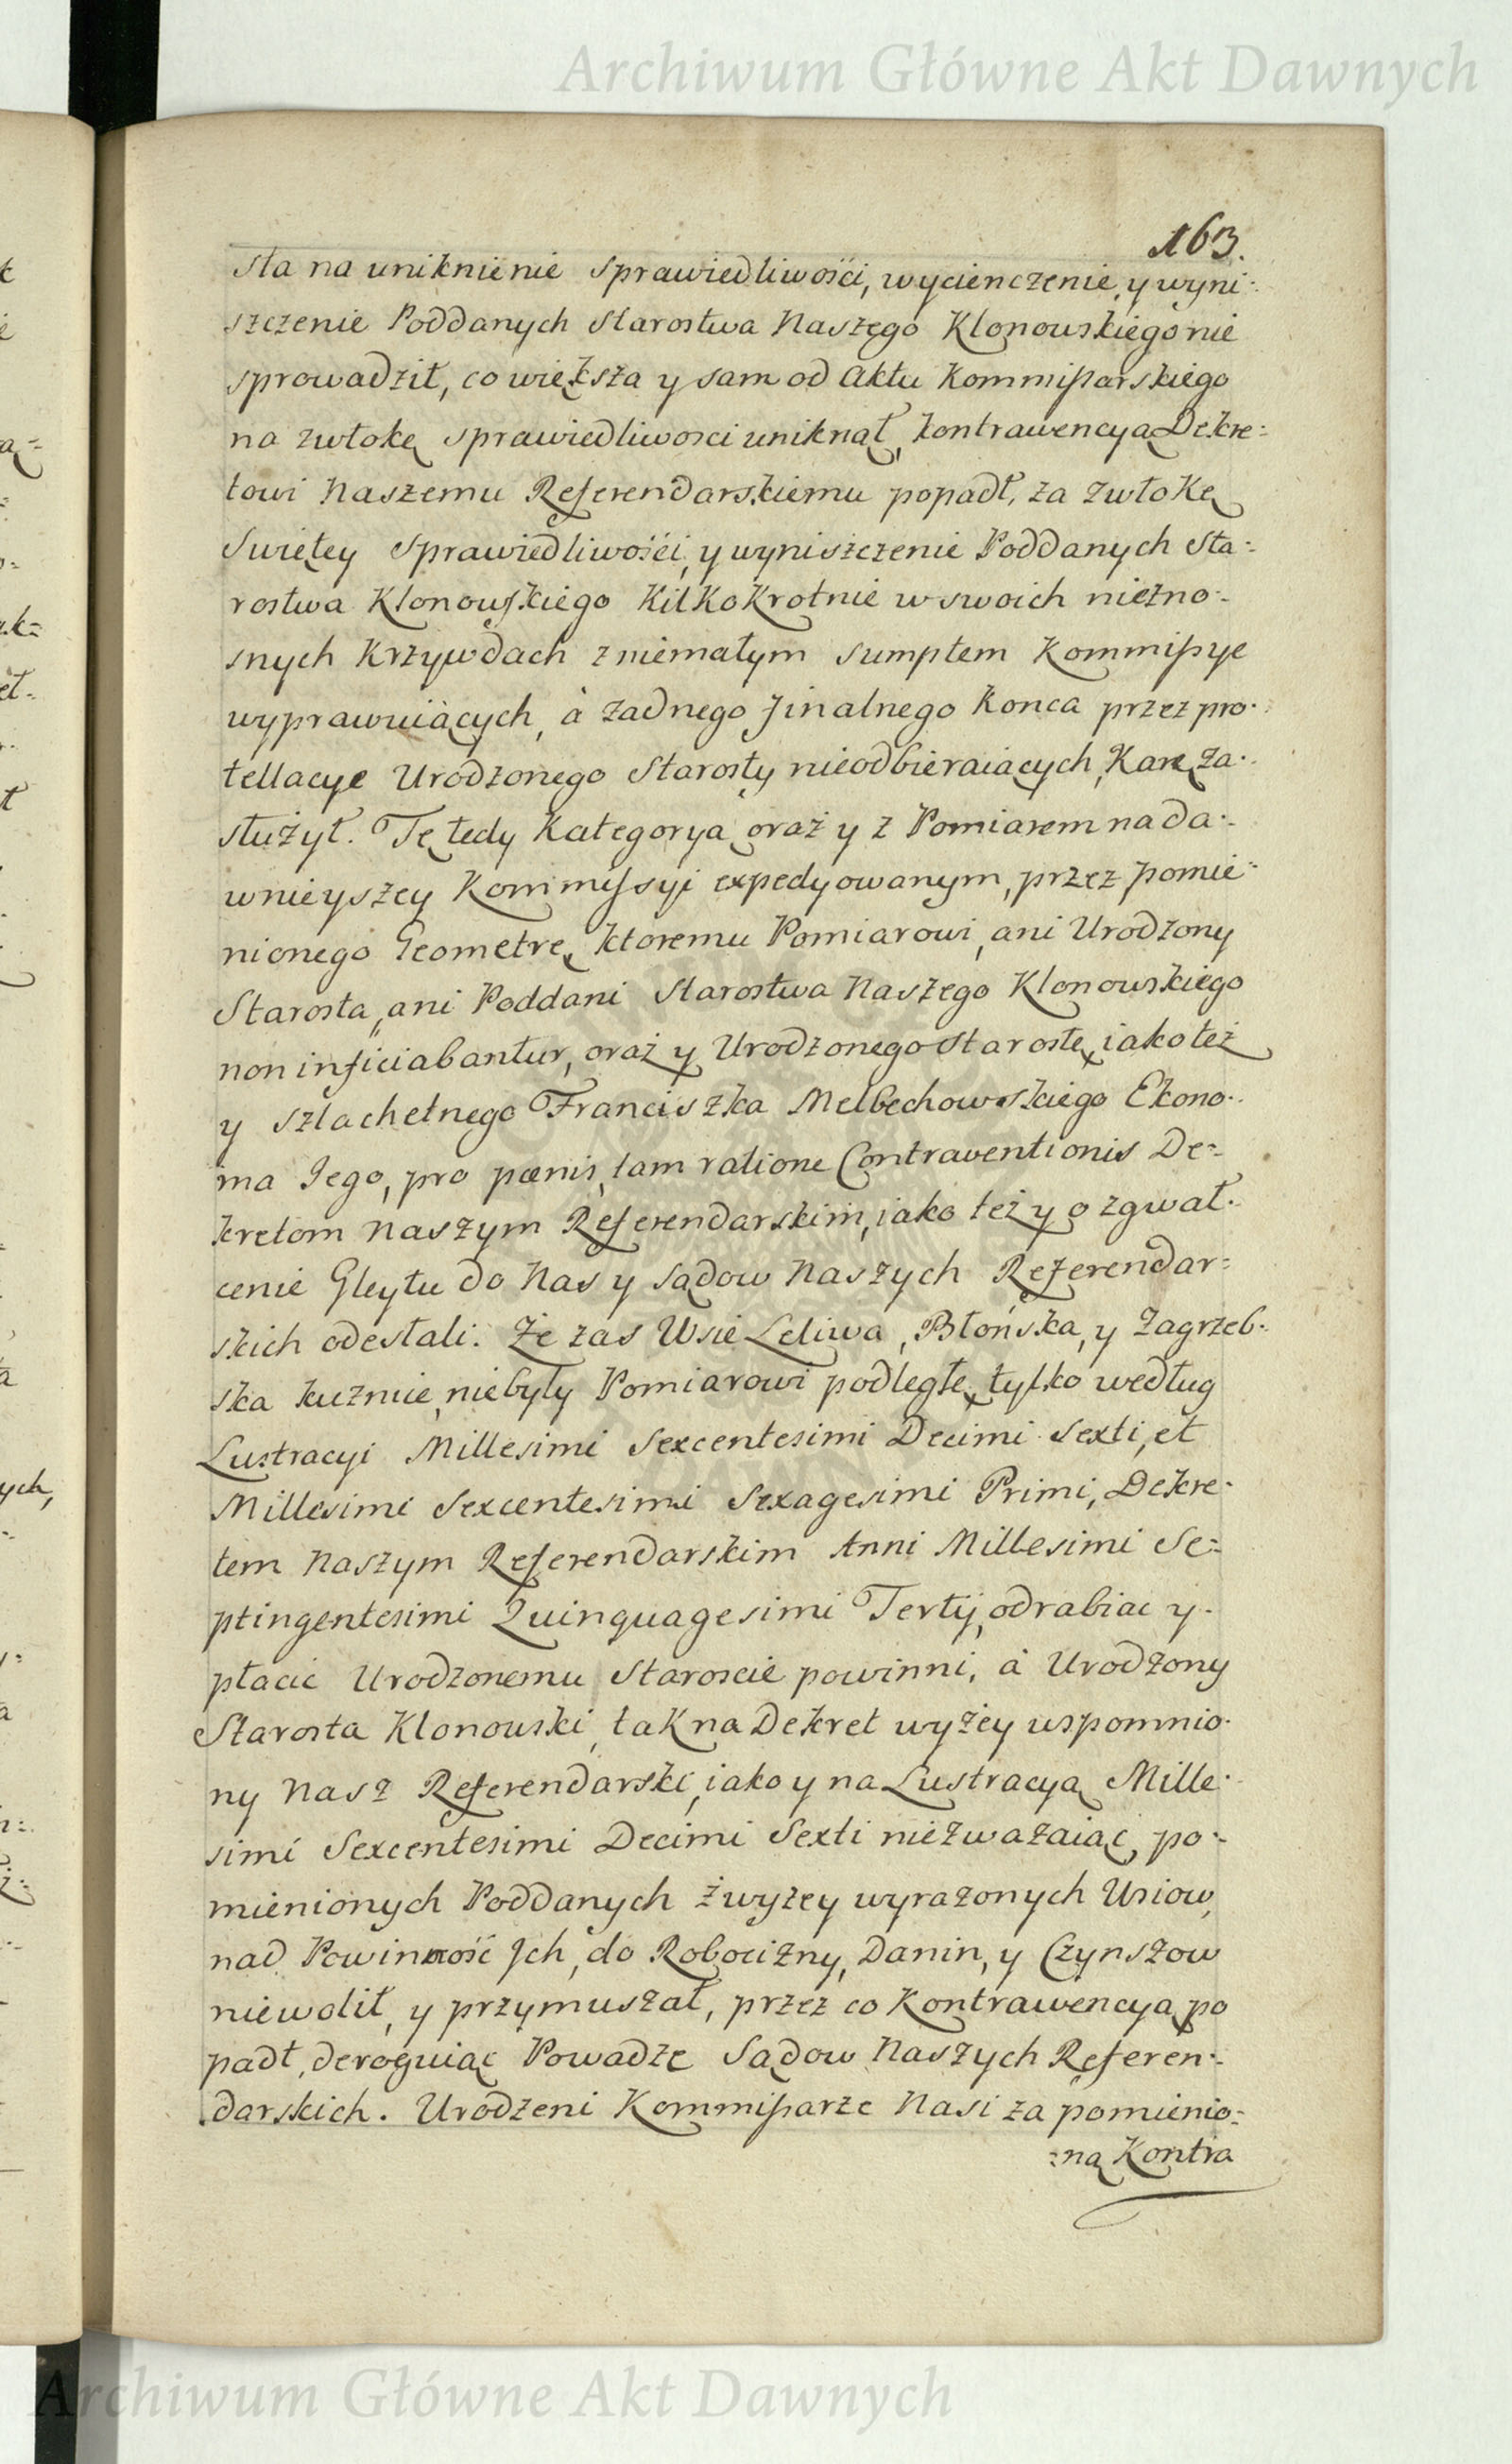 Archiwum Główne Akt Dawnych
163.
sta na uniknienie sprawiedliwości, wycienczenie, y wyni:
szczenie Poddanych Starostwa Naszego Klonowskiego nie
sprowadził, co większa y sam od Aktu Kommissarskiego
na zwłokę sprawiedliwosci uniknął, kontrawencyą Dekre:
towi Naszemu Referendarskiemu popadł, za zwłokę
Swiętey Sprawiedliwości, y wyniszczenie Poddanych Sta:
rostwa Klonowskiego Kilkokrotnie w swoich niezno:
snych Krzywdach z niemałym sumptem Kommissye
wyprawuiących, à żadnego finalnego Konca przez pro:
tellacye Urodzonego Starosty nieodbieraiących, Karę za:
służył. Tę tedy Kategoryą oraz y z Pomiarem na da:
wnieyszey Kommissyi expedyowanym, przez pomie:
nionego Geometrę, ktoremu Pomiarowi, ani Urodzony
Starosta, ani Poddani Starostwa Naszego Klonowskiego
non inficiabantur, oraz y Urodzonego Starostę, iako też
y Szlachetnego Franciszka Melbechowskiego Ekono:
ma Jego, pro pœnis, tam ratione Contraventionis De:
kretom Naszym Referendarskim, iako też y o zgwał:
cenie Gleytu do Nas y Sądow Naszych Referendar:
skich odesłali. Że zas Wsie Leliwa, Błońska, y Zagrzeb:
ska kuznie, niebyły Pomiarowi podległe, tylko według
Lustracyi Millesimi Sexcentesimi Decimi Sexti, et
Millesimi Sexcentesimi Sexagesimi Primi, Dekre:
tem Naszym Referendarskim Anni Millesimi Se:
ptingentesimi Quinquagesimi Tertij, odrabiac y
płacic Urodzonemu Staroscie powinni, à Urodzony
Starosta Klonowski, tak na Dekret wyżey wspomnio:
ny Nasz Referendarski, iako y na Lustracyą Mille:
simi Sexcentesimi Decimi Sexti niezważaiąc, po:
mienionych Poddanych z wyżey wyrażonych Wsiow,
nad Powinność Jch, do Robocizny, Danin, y Czynszow
niewolił, y przymuszał, przez co Kontrawencyą po
padł, deroguiąc Powadze Sądow Naszych Referen:
darskich. Urodzeni Kommissarze Nasi za pomienio:
:ną Kontra
Archiwum Główne Akt Dawnych